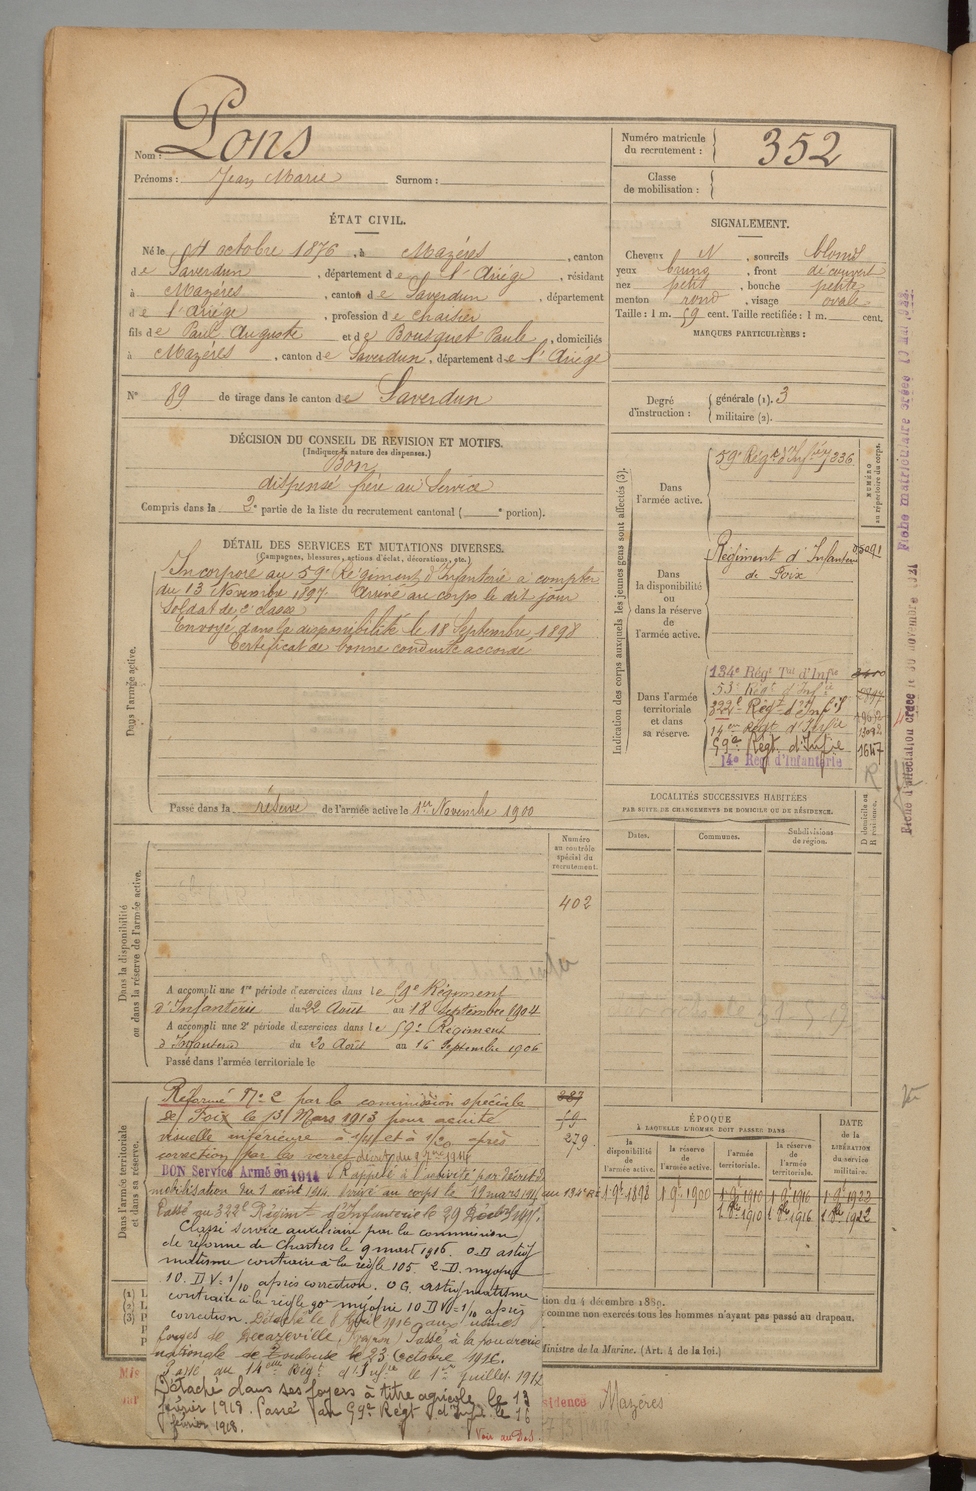 Nom : Pons
Prénoms : Jean Marie Surnom :
Numéro matricule du recrutement : 352
Classe de mobilisation :
ÉTAT CIVIL.
Né le 4 octobre 1876, à Mazéres, canton
de Saverdun, département de l'Ariége, résidant
à Mazéres, canton de Saverdun, département
de l'Ariége, profession de
fils de Paul Auguste et de Bousquet Paule, domiciliés
à Mazéres, canton de Saverdun, département de l'Ariége
N° 89 de tirage dans le canton de Saverdun
SIGNALEMENT.
Cheveux N, sourcils blonds
yeux bruns, front découvert
nez petit, bouche petite
menton rond, visage ovale
Taille : 1 m. 59 cent. Taille rectifiée : 1 m. cent.
MARQUES PARTICULIÈRES :
Degré d'instruction : générale (1). 3
militaire (2).
DÉCISION DU CONSEIL DE REVISION ET MOTIFS.
(Indiquer la nature des dispenses.)
Bon
dispensé frère au Service
Compris dans la 2e partie de la liste du recrutement cantonal ( e portion).
DÉTAIL DES SERVICES ET MUTATIONS DIVERSES.
(Campagnes, blessures, actions d'éclat, décorations, etc.)
Dans l'armée active.
Incorporé au 59e Régiment d'Infanterie à compter
du 13 Novembre 1897. Arrivé au corps le dit jour
Soldat de 2e classe
Envoyé dans la disponibilité le 18 Septembre 1898
Certificat de bonne conduite accordé
Passé dans la réserve de l'armée active le 1er Novembre 1900
Indication des corps auxquels les jeunes gens sont affectés (3).
NUMÉRO au répertoire du corps.
Dans l'armée active.
59e Régt d'Infrie 7336
Dans la disponibilité ou dans la réserve de l'armée active.
Régiment d'Infanterie
de Foix
Dans l'armée territoriale et dans sa réserve.
134e Régt Tal d'Infie
53e Régt d'Infie
322e Régt d'Inf
14e Régt d'Infie
59e Régt d'Infie 1647
14e Régt d'Infanterie
R
LOCALITÉS SUCCESSIVES HABITÉES
PAR SUITE DE CHANGEMENTS DE DOMICILE OU DE RÉSIDENCE.
Dates. Communes. Subdivisions de région. D domicile ou R résidence.
Dans la disponibilité ou dans la réserve de l'armée active.
Numéro au contrôle spécial du recrutement.
402
A accompli une 1re période d'exercices dans le 59e Régiment
d'Infanterie du 22 Août au 18 Septembre 1904
A accompli une 2e période d'exercices dans le 59e Régiment
d'Infanterie du 20 Août au 16 Septembre 1906
Passé dans l'armée territoriale le
Dans l'armée territoriale et dans sa réserve
387
59
279
Réformé No 2 par la commission spéciale
de Foix le 13 Mars 1913 pour acuité
visuelle inférieure à 1/4 et à 1/20 après
correction par les verres
BON Service Armé en 1914 Rappelé à l'activité par décret de
mobilisation du 1 août 1914. Arrivé au corps le au 134e
Passé au 322e Régiment d'Infanterie le 29
Classé service auxiliaire par la commission
de réforme de Chartres le 9 mars 1916. O D astig
matisme contraire à la règle 105. 2. D. myopie
10. D V = 1/10 après correction. O G. astigmatisme
contraire à la règle 90° myopie 10 D V = 1/10 après
correction. Détaché le 8 Avril 1916 aux usines
forges de Decazeville (Aveyron) Passé à la poudrerie
nationale de Toulouse le 23 Octobre 1916.
Passé au 14eme Régt d'Infie le 1er Juillet 1917
Détaché dans ses foyers à titre agricole le 13
février 1918. Passé au 59e Régt d'Infie le 16
février 1918.
Voir au Dos.
ÉPOQUE
À LAQUELLE L'HOMME DOIT PASSER DANS
la disponibilité de l'armée active. la réserve de l'armée active. l'armée territoriale. la réserve de l'armée territoriale.
DATE de la LIBÉRATION du service militaire.
1 9e 1898 1 9e 1900 1 9e 1910 1 9e 1916 1 9e 1922
1 8re 1910 1 8re 1916 1 8re 1922
tion du 4 décembre 1889.
comme non exercés tous les hommes n'ayant pas passé au drapeau.
Ministre de la Marine. (Art. 4 de la loi.)
sidence Mazéres
Fiche d'affectation créée le 30 novembre 1921
Fiche matriculaire créée